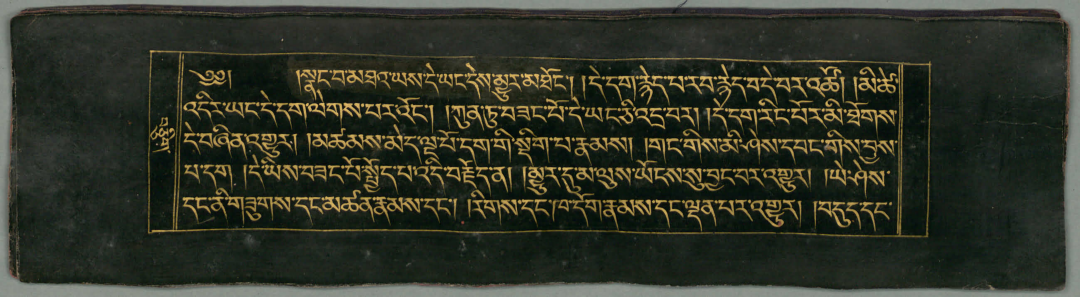 ༄༅། །སྣང་བ་མཐའ་ཡས་དེ་ཡང་དེས་མྱུར་མཐོང་། །དེ་དག་རྙེད་པ་རབ་རྙེད་བདེ་བར་འཚོ། །མི་ཚེ་
འདིར་ཡང་དེ་དག་ལེགས་པར་འོང་། །ཀུན་ཏུ་བཟང་པོ་དེ་ཡང་ཅི་འདྲ་བར། །དེ་དག་རིང་པོར་མི་ཐོགས་
དེ་བཞིན་འགྱུར། །མཚམས་མེད་ལྔ་པོ་དག་གི་སྡིག་པ་རྣམས། །གང་གིས་མི་ཤེས་དབང་གིས་བྱས་
པ་དག །དེ་ཡིས་བཟང་པོ་སྤྱོད་པ་འདི་བརྗོད་ན། །མྱུར་དུ་མ་ལུས་ཡོངས་སུ་བྱང་བར་འགྱུར། །ཡེ་ཤེས་
དང་ནི་གཟུགས་དང་མཚན་རྣམས་དང་། །རིགས་དང་ཁ་དོག་རྣམས་དང་ལྡན་པར་འགྱུར། །བདུད་དང་